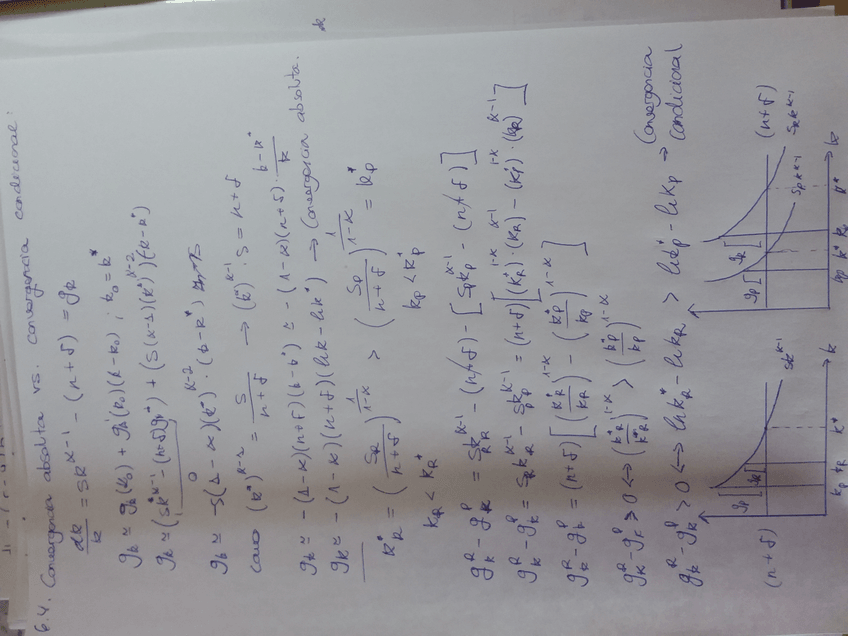 6.4. Convergencia absoluta vs. convergencia condicional:
dk/k = sk^(α-1) - (n+δ) = gk
gk ≃ gk(k0) + gk'(k0)(k-k0) ; k0 = k*
gk ≃ (sk*^(α-1) - (n+δ)) + (s(α-1)(k*)^(α-2))(k-k*)
0
gk ≃ -s(1-α)(k*)^(α-2) · (k-k*)
como (k*)^(α-1) = s/(n+δ) → (k*)^(α-1) · s = n+δ
gk ≃ -(1-α)(n+δ)(k-k*) ≃ -(1-α)(n+δ) · (k-k*)/k
gk ≃ -(1-α)(n+δ)(lnk - lnk*) → Convergencia absoluta.
k*R = (sR/(n+δ))^(1/(1-α)) > (sP/(n+δ))^(1/(1-α)) = k*P
kR < k*R kP < k*P
gk^R - gk^P = sR kR^(α-1) - (n+δ) - [sP kP^(α-1) - (n+δ)]
gk^R - gk^P = sR kR^(α-1) - sP kP^(α-1) = (n+δ)[(k*R)^(1-α) · (kR)^(α-1) - (k*P)^(1-α) · (kP)^(α-1)]
gk^R - gk^P = (n+δ)[(k*R/kR)^(1-α) - (k*P/kP)^(1-α)]
gk^R - gk^P > 0 ↔ (k*R/kR)^(1-α) > (k*P/kP)^(1-α)
gk^R - gk^P > 0 ↔ lnk*R - lnkR > lnk*P - lnkP → Convergencia condicional
(n+δ) gP gR sk^(α-1)
kP kR k* k
gP gR (n+δ) sR k^(α-1)
sP k^(α-1)
kP k* kR k* k